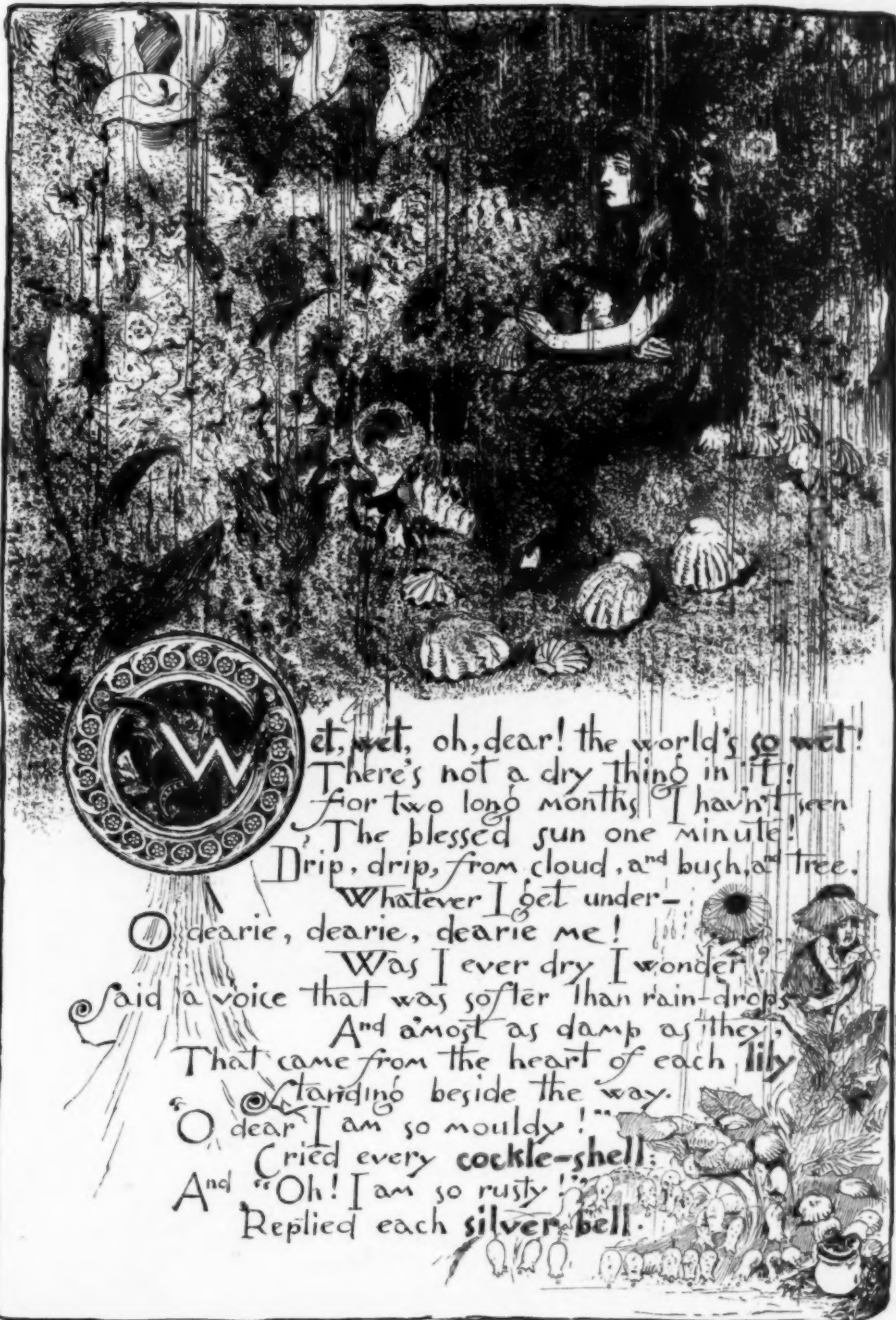 Wet, wet, oh, dear! the world's so wet!
There's not a dry thing in it!
For two long months I hav'n't seen
The blessed sun one minute!
Drip, drip, from cloud, and bush, and tree,
Whatever I get under–
O dearie, dearie, dearie me!
Was I ever dry I wonder?"
Said a voice that was softer than rain-drops
And a'most as damp as they,
That came from the heart of each lily
Standing beside the way.
"O dear I am so mouldy!"
Cried every cockle-shell;
And "Oh! I am so rusty!"
Replied each silver bell.